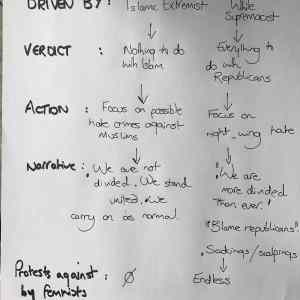 DRIVEN BY: Islamic Extremist White Supremacist
VERDICT : Nothing to do with Islam Everything to do with Republicans
ACTION : Focus on possible hate crimes against Muslims Focus on right wing hate
Narrative: "We are not divided. We stand united. We carry on as normal "We are more divided than ever."
"Blame republicans".
. Sackings/scalpings
Protests against by feminists : Ø Endless